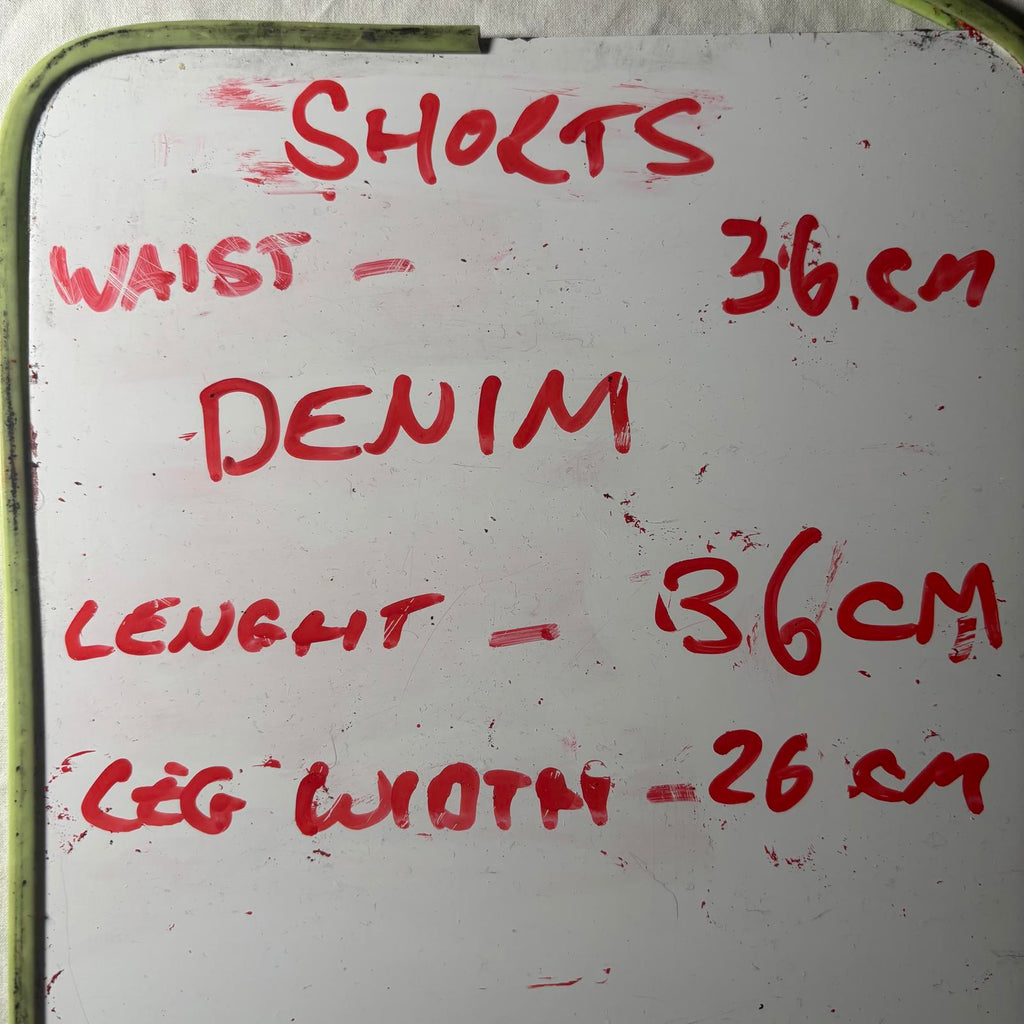 SHORTS
WAIST - 36.cm
DENIM
LENGHT - 36CM
LEG WIDTH - 26 cm